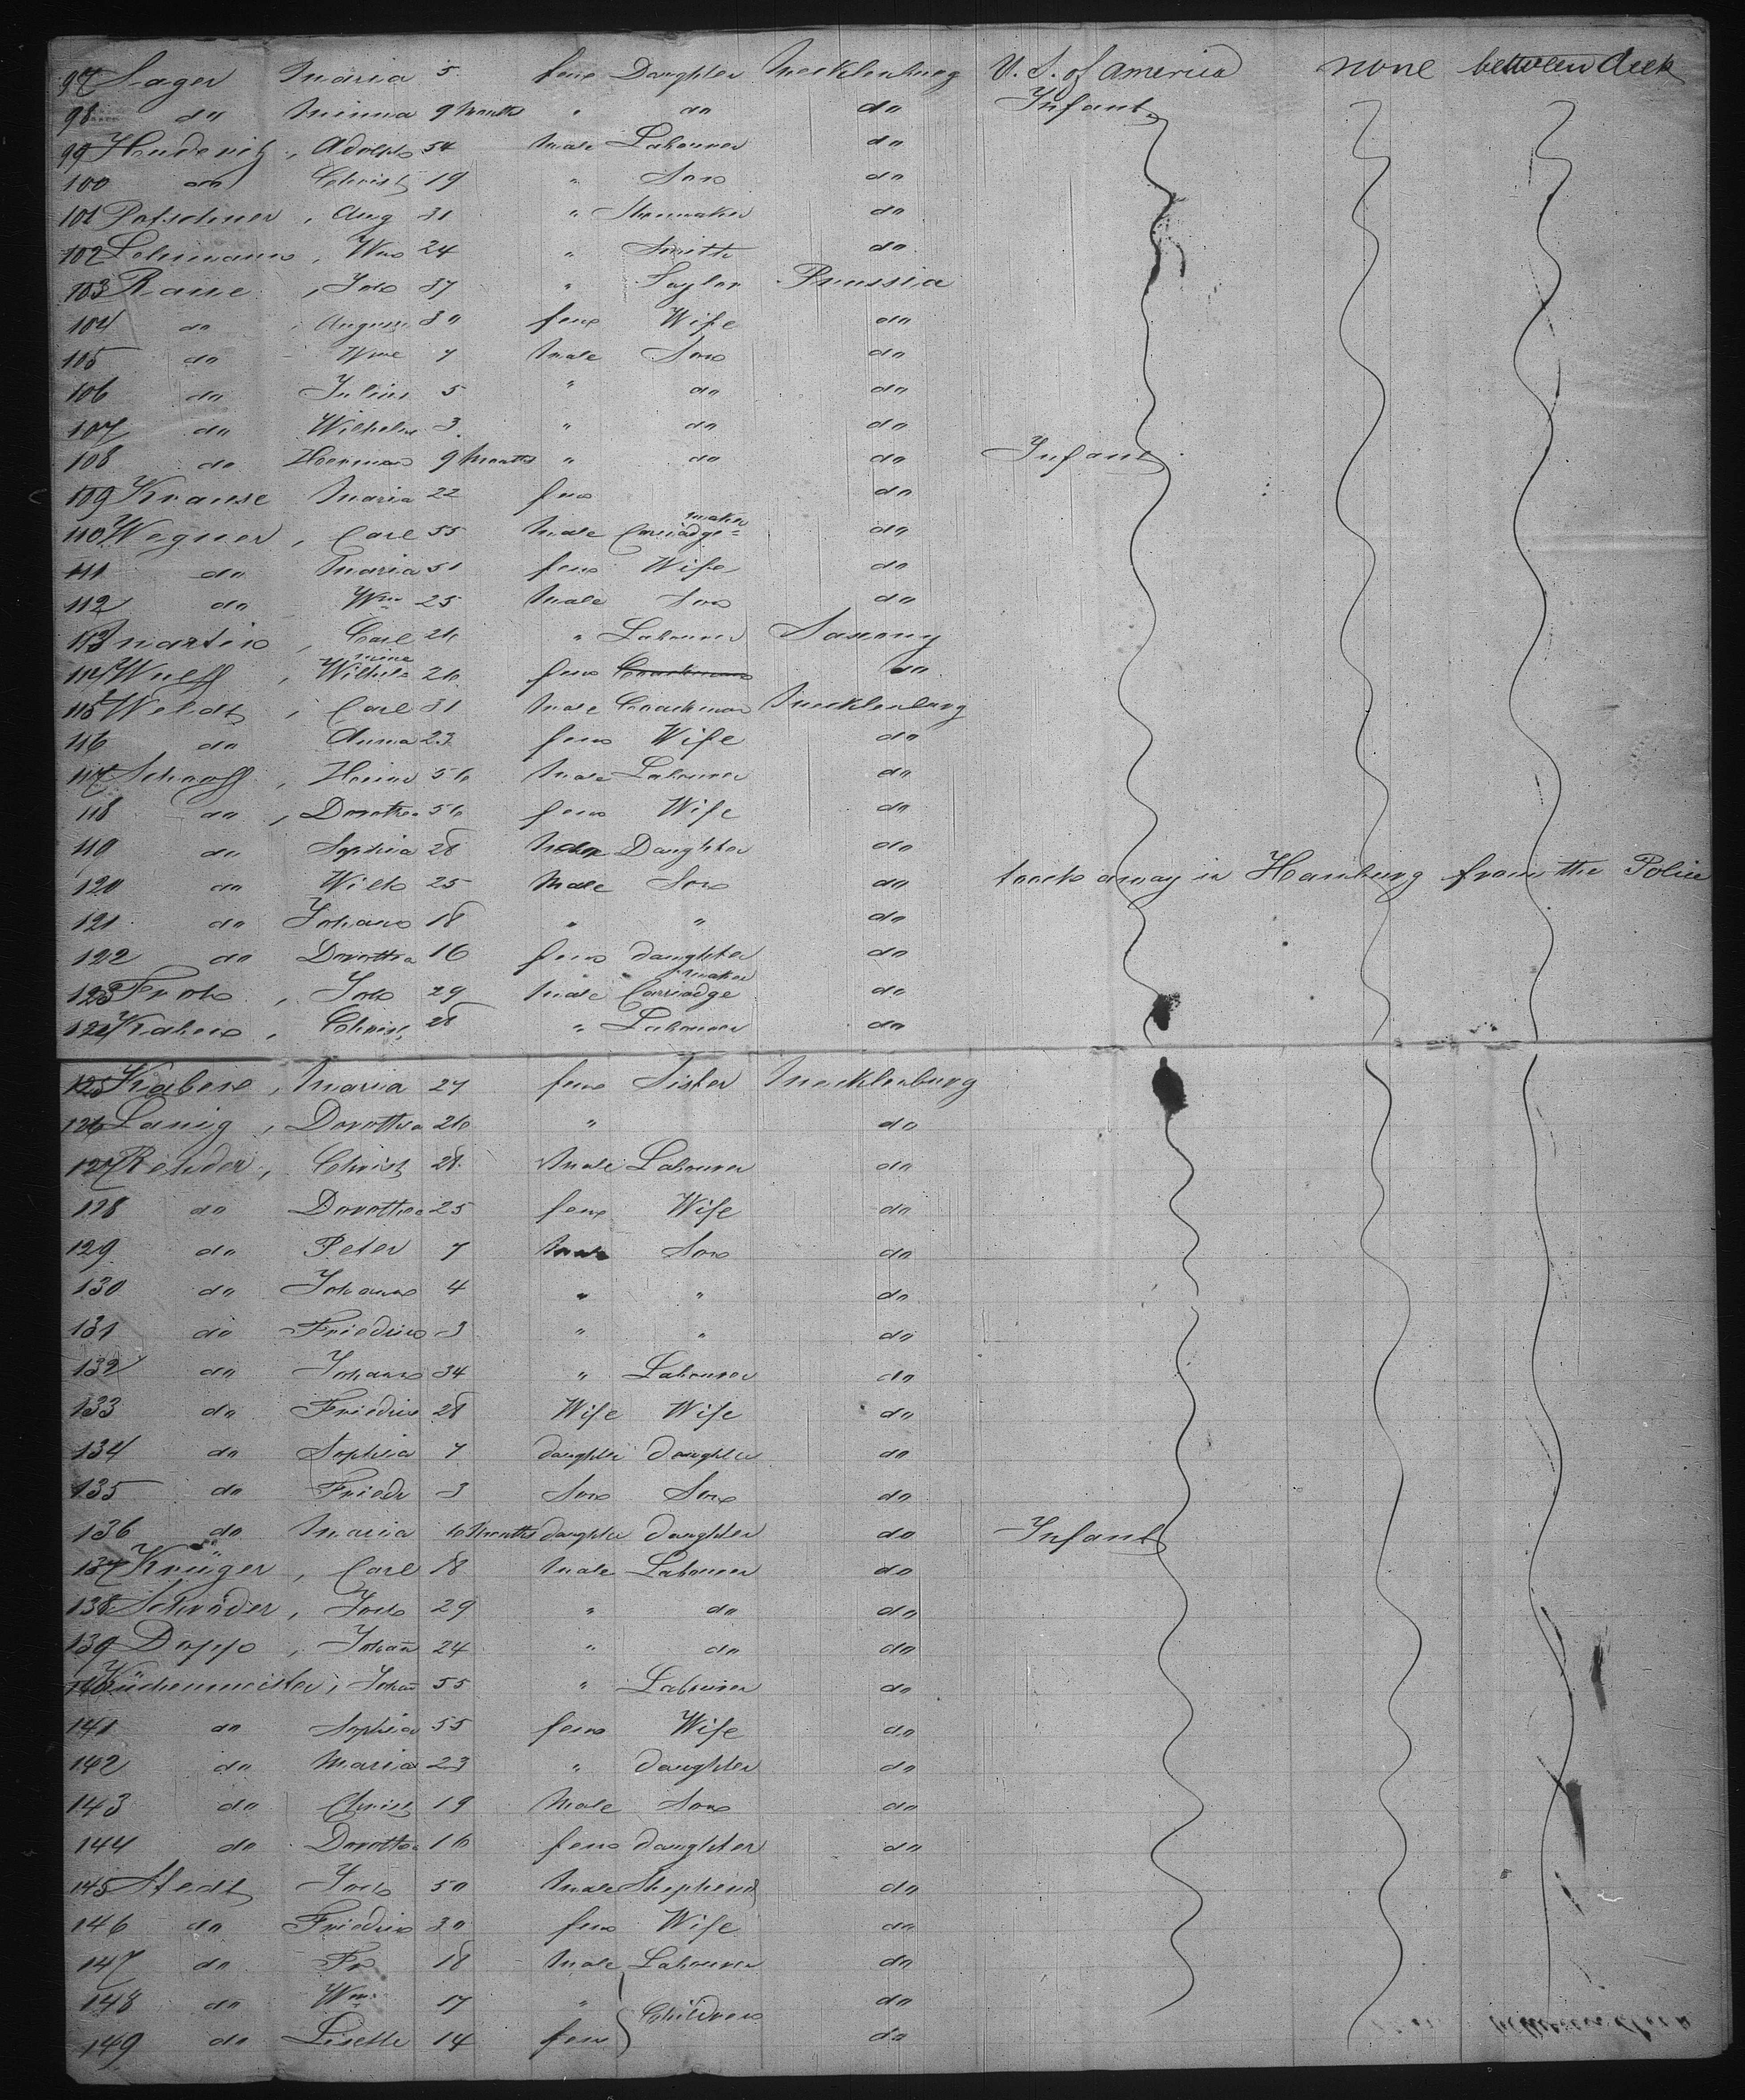 97 Sager Maria 5 fem Daughter Mecklenburg U. S. of America none between deck
98 do Minna 9 Months " do do Infant
99 , Adolph 54 Male Labourer do
100 do Christ 19 " Son do
101 Potschner , Aug 31 " Shoemaker do
102 Lehmann , Wm 24 " Smith do
103 Raue , Joh 37 " Taylor Prussia
104 do , August 30 fem Wife do
105 do Wm 7 Male Son do
106 do Julius 5 " do do
107 do Wilhelm 3 " do do
108 do Herman 9 Months " do do Infant
109 Krause Maria 22 fem do
110 Wegner , Carl 55 Male Carriadge= maker do
111 do Maria 51 fem Wife do
112 do Wm 25 Male Son do
113 Martin , Carl 26 " Labourer Saxony
114 Wulff , Wilhelmine 26 fem Coachman do
115 Weldt , Carl 31 Male Coachman Mecklenburg
116 do Anna 23 fem Wife do
117 Schaaff , Heinr 56 Male Labourer do
118 do , Dorothea 56 fem Wife do
119 do Sophia 28 Daughter do
120 do Wilh 25 Male Son do took away in Hamburg from the Police
121 do Johann 18 " " do
122 do Dorothea 16 fem daughter do
123 Froh , Joh 29 Male Carriadge maker do
124 , Christ, 28 " Labourer do
125 , Maria 27 fem Sister Mecklenburg
126 Lanig , Dorothea 26 " do
127 Rehder , Christ 28 Male Labourer do
128 do Dorothea 25 fem Wife do
129 do Peter 7 Male Son do
130 do Johann 4 " " do
131 do Friedrich 3 " " do
132 do Johann 34 " Labourer do
133 do 28 Wife Wife do
134 do Sophia 7 daughter daughter do
135 do Friedr 3 Son Son do
136 do Maria 6 Months daughter daughter do Infant
137 Krüger , Carl 18 Male Labourer do
138 Schröder , Joch 29 " do do
139 Dopp , Johan̄ 24 " do do
140 Küchenmeister , Johan̄ 55 " Labourer do
141 do Sophia 55 fem Wife do
142 do Maria 23 " daughter do
143 do Christ 19 Male Son do
144 do Dorothea 16 fem daughter do
145 Stedt Joch 50 Male Shepherd do
146 do 30 fem Wife do
147 do Fr 18 Male Labourer do
148 do Wm 17 " Children do
149 do Lisette 14 fem do